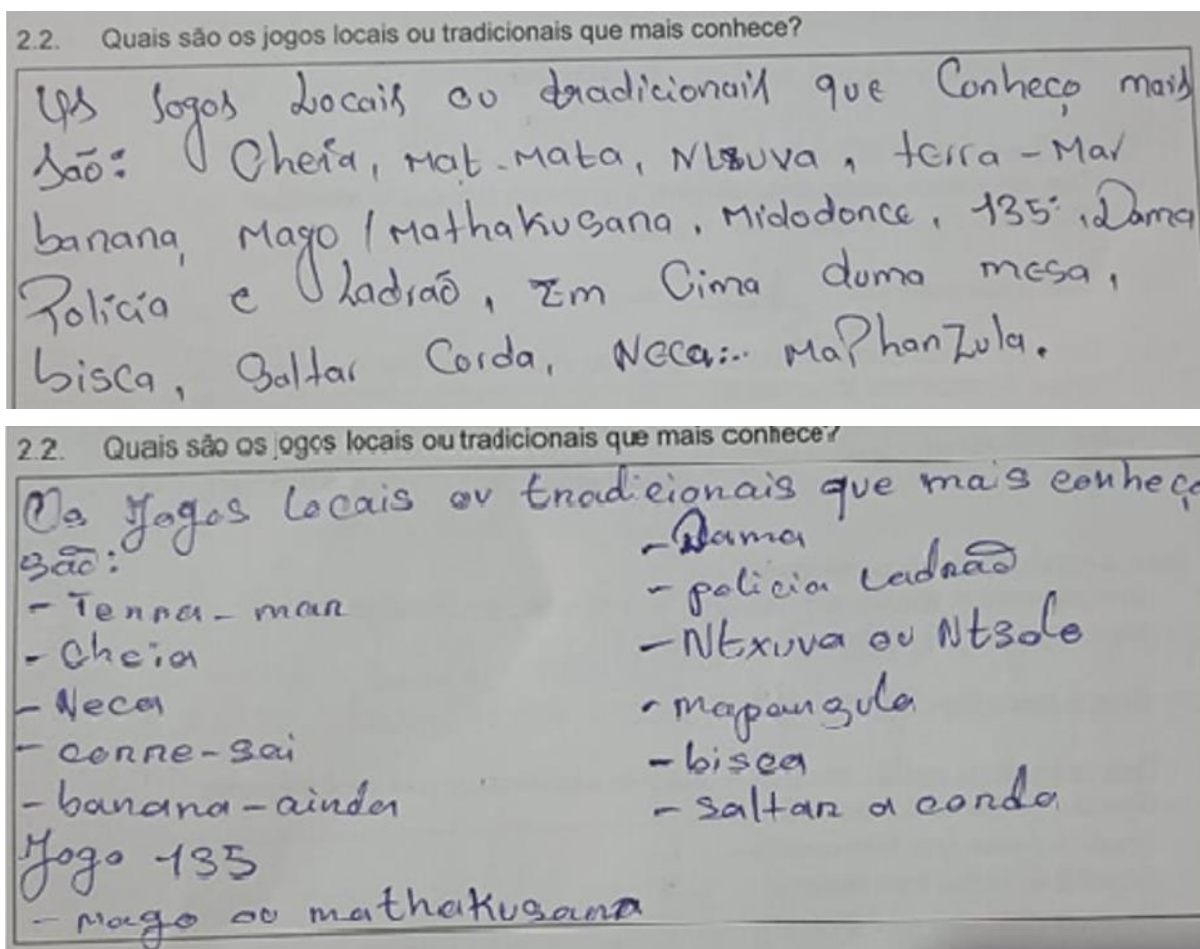 2.2. Quais são os jogos locais ou tradicionais que mais conhece?
Os Jogos Locais ou tradicionais que Conheço mais
são: Cheia, Mat-Mata, Ntxuva, terra-Mar
banana, Mago / Mathakusana, Midodonce, 135:, Dama
Polícia e Ladraõ, Em Cima duma mesa,
bisca, Saltar Corda, Neca... MaPhanZula.
2.2. Quais são os jogos locais ou tradicionais que mais conhece?
Os Jogos Locais ou tradicionais que mais conheço
são:
- Terra-mar
- Cheia
- Neca
- corre-sai
- banana-ainda
Jogo 135
- mago ou mathakusana
- Dama
- policia Ladrão
- Ntxuva ou Ntsole
- mapanzula
- bisca
- saltar a corda